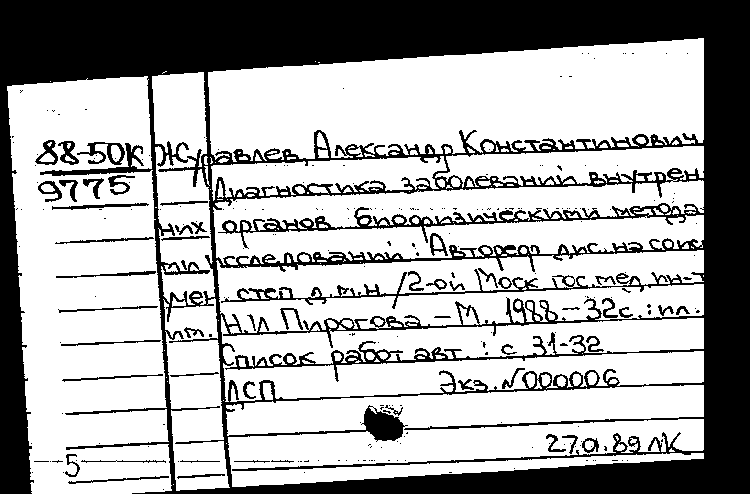 88-50К Журавлев, Александр Константинович
9775 Диагностика заболеваний внутрен
них органов биофизическими метода
ми исследований: Автореф дис. на соиск
учен. степ д.м.н /2-ой Моск гос. мед. ин-т
им. Н.И Пирогова. – М., 1988. – 32с. : ил.
Список работ авт. : с 31-32.
ДСП. Экз. №000006
27.01.89 ЛК
5